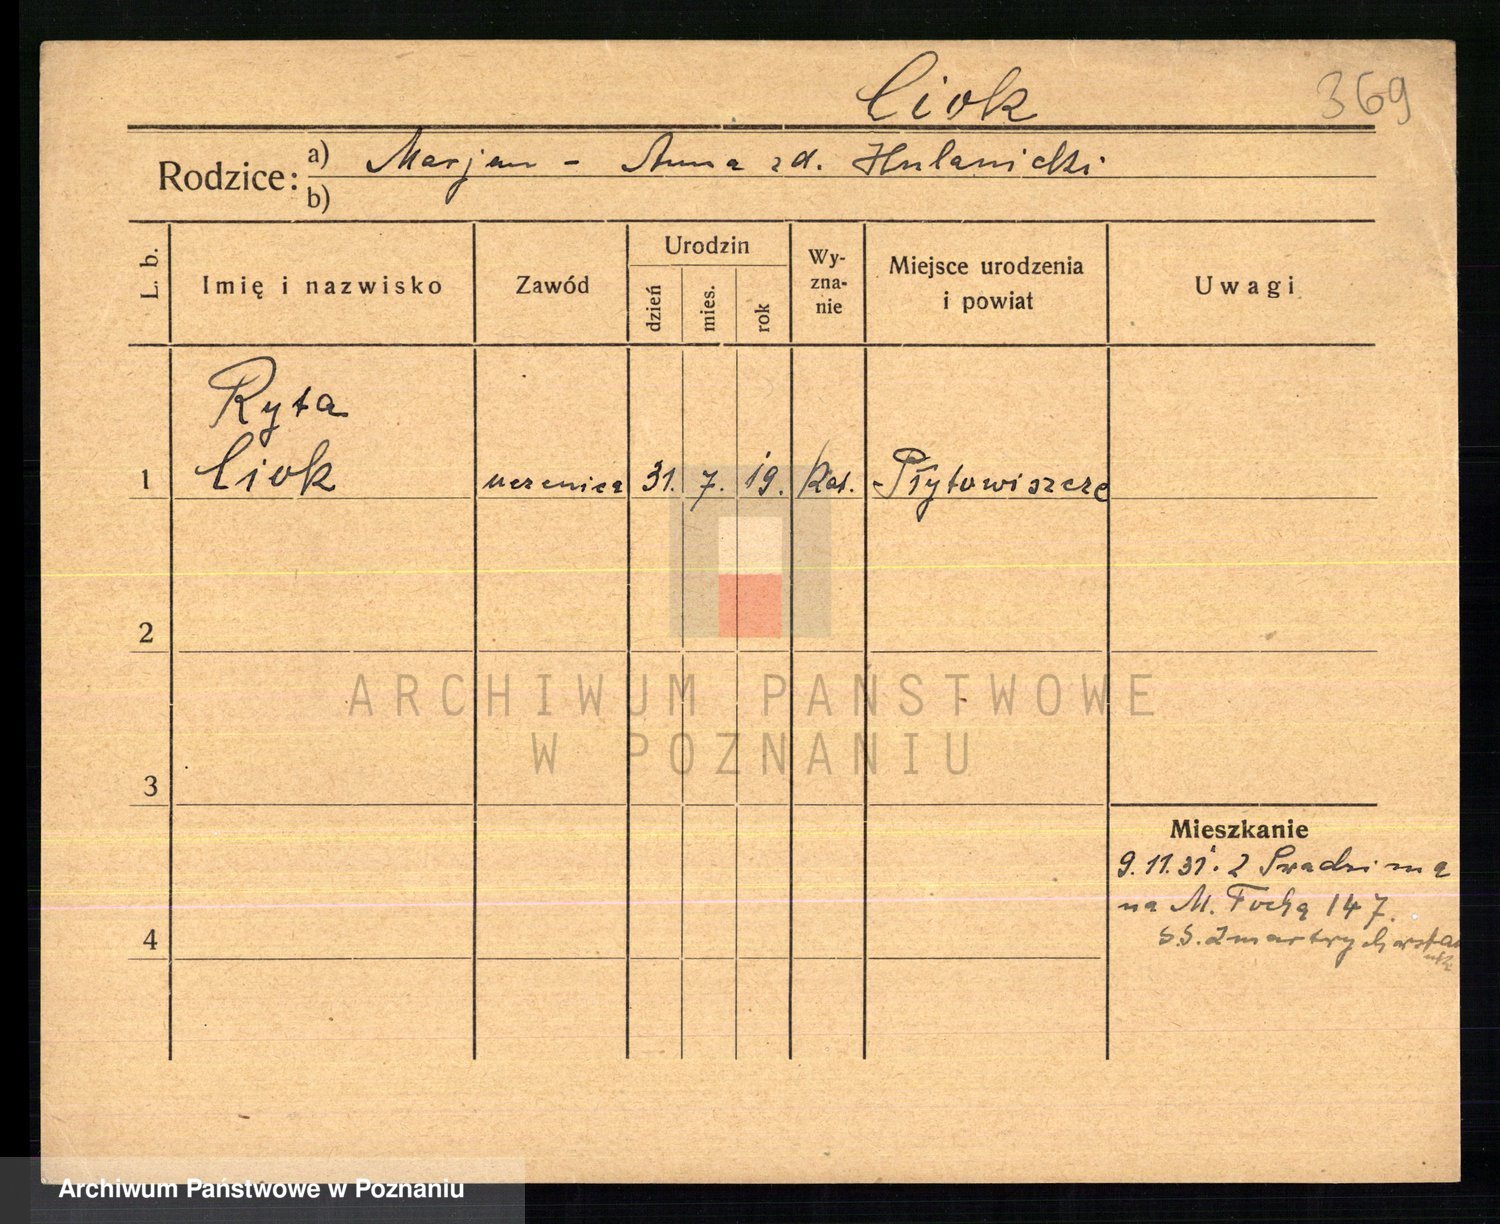 Ciok
369
Rodzice: a) Marjan - Anna zd. Hulanicki
b)
L. b.
Imię i nazwisko
Zawód
Urodzin
dzień
mies.
rok
Wy-
zna-
nie
Miejsce urodzenia
i powiat
Uwagi
Ryta
1 Ciok uczenica 31. 7. 19. Kat. Płytowiszcze
2
ARCHIWUM PAŃSTWOWE
W POZNANIU
3
Mieszkanie
9.11.31. z Swadzimą
na M. Focha 147.
4
S.S. Zmartwychwstan
Archiwum Państwowe w Poznaniu